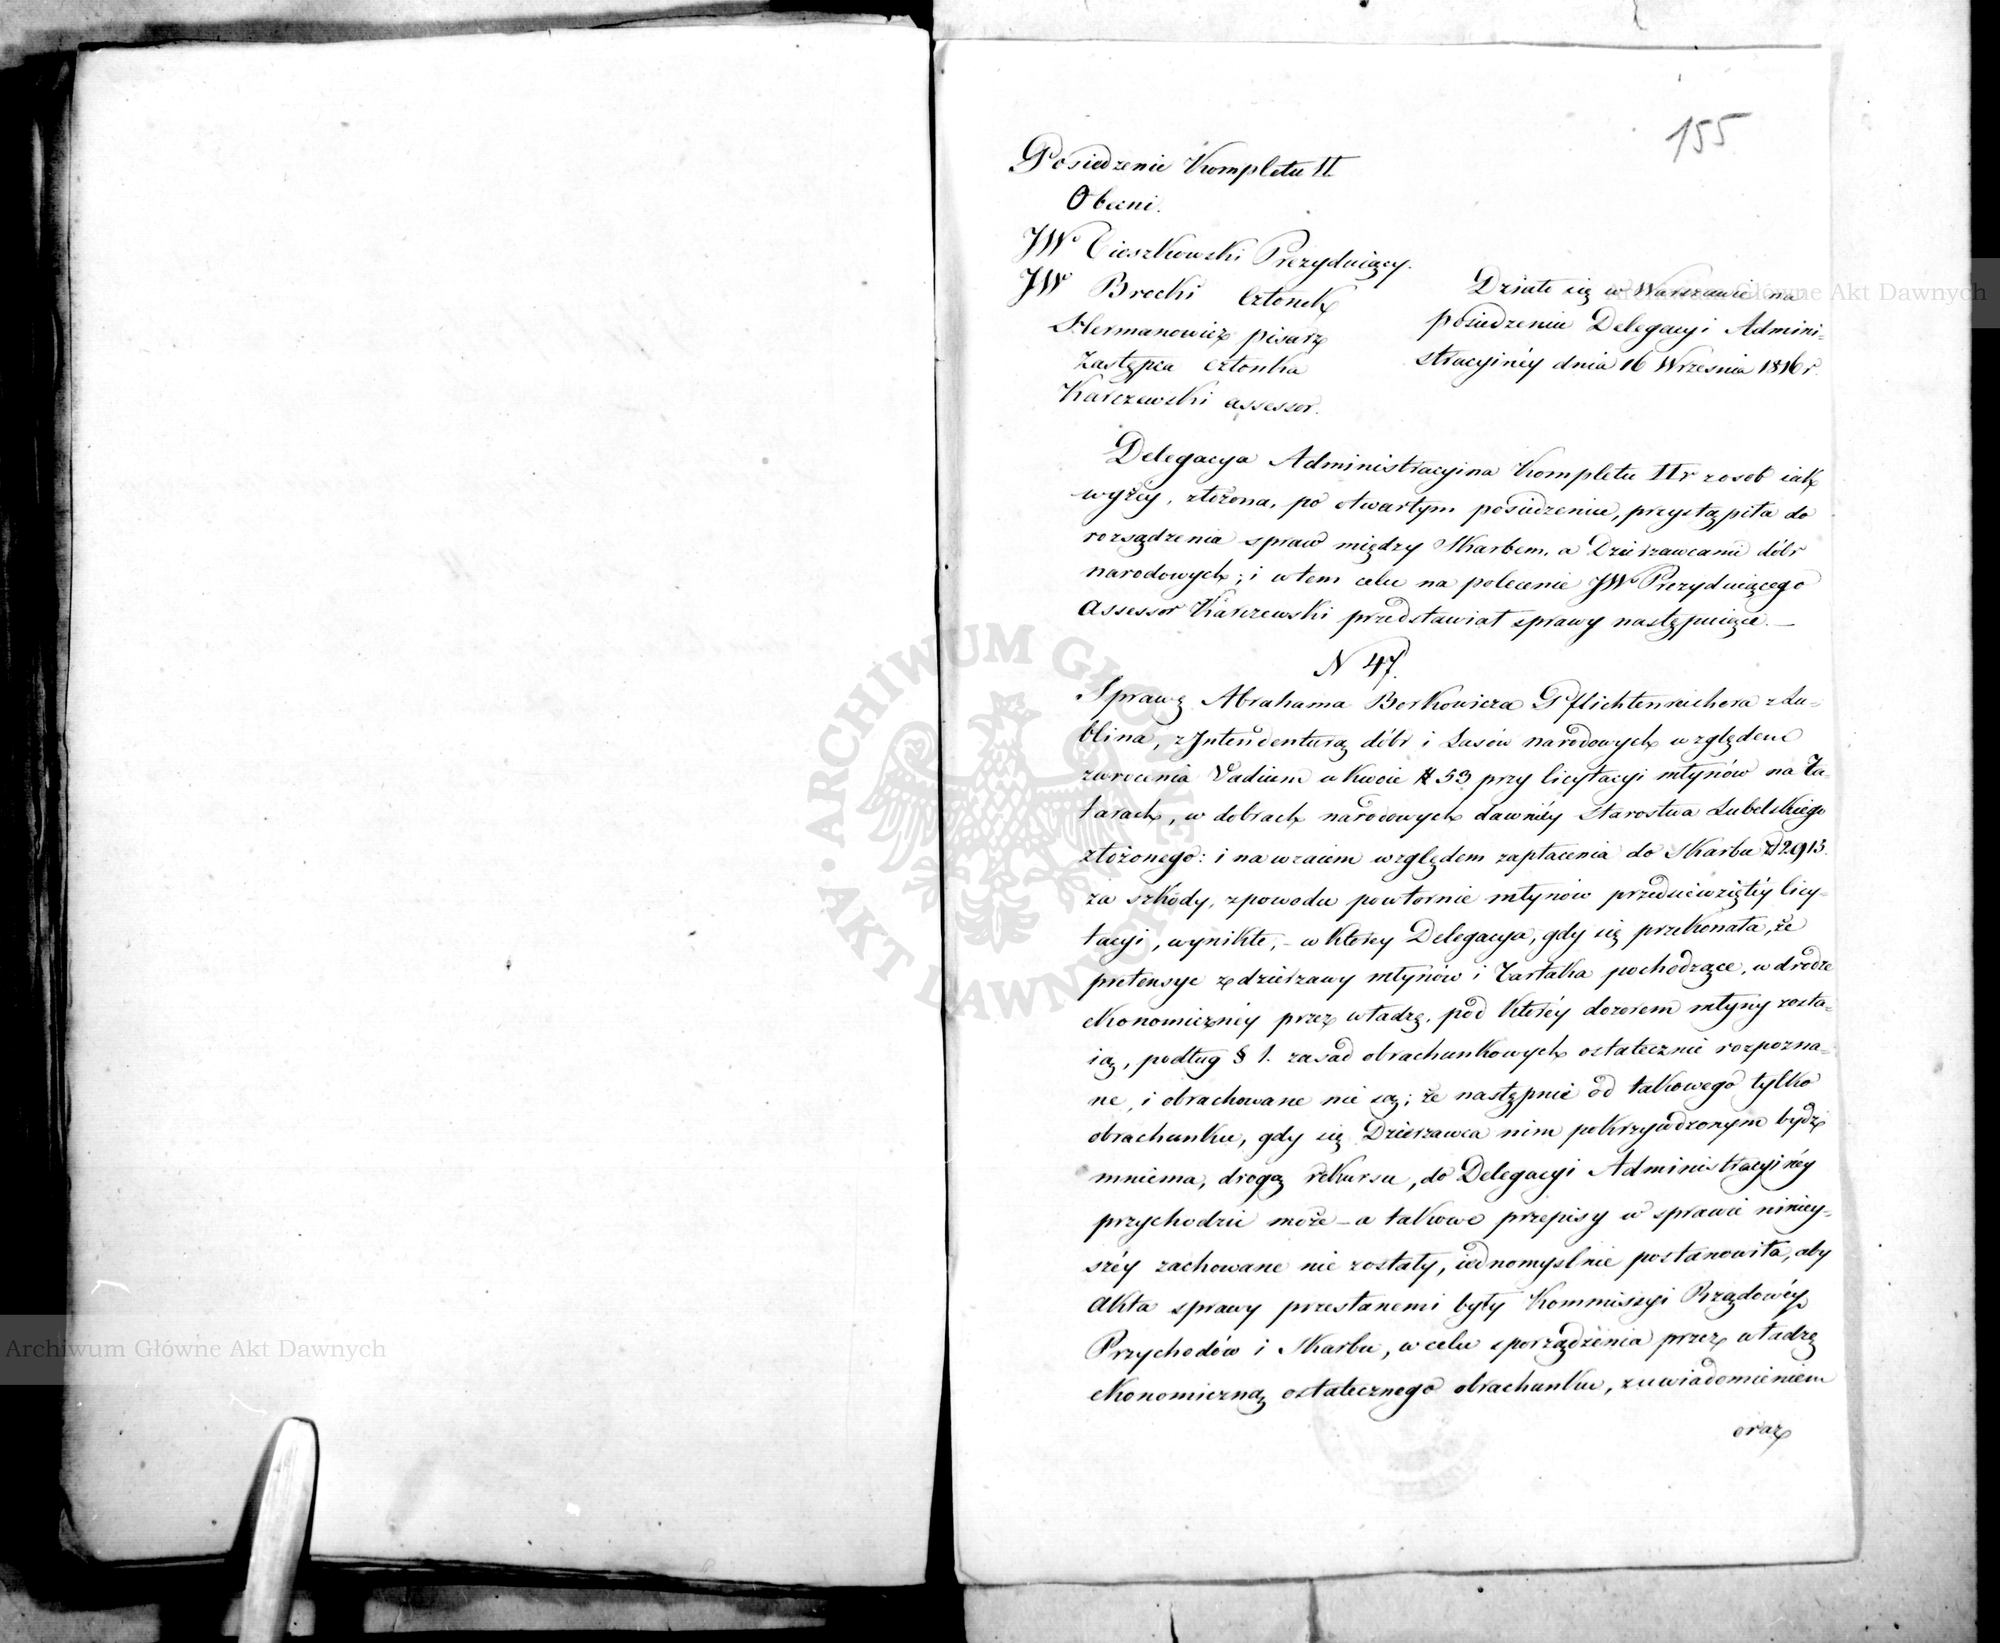 155
Posiedzenie Kompletu II
Obecni.
JW Cieszkowski Prezyduiący.
JW Brocki Członek
Hermanowicz pisarz
Zastępca członka
Karczewski assessor.
Działo się w Warszawie na
posiedzeniu Delegacyi Admini-
stracyinéy dnia 16 Września 1816 r.
Delegacya Administracyina Kompletu IIº z osob iak
wyżey, złożona, po otwartym posiedzeniu, przystąpiła do
rozsądzenia spraw między Skarbem, a Dzierzawcami dóbr
narodowych; i w tem celu na polecenie JW Prezyduiącego
Assessor Karczewski przedstawiał sprawy następuiące. —
N 47.
Sprawę Abrahama Berkowicza Pflichtenreichera z Lu-
blina, z Intendenturą dóbr i Lasów narodowych względem
zwrocenia Vadium w kwocie # 53 przy licytacyi młynów na Ta-
tarach, w dobrach narodowych dawniéy Starostwa Lubelskiego
złożonego: i nawzaiem względem zapłacenia do Skarbu zł 2913.
za szkody, z powodu powtornie młynów przedsięwziętéy licy-
tacyi, wynikłe, - w którey Delegacya, gdy się przekonała, że
pretensye z dzierzawy młynów i Tartaka pochodzące, w drodze
ekonomicznéy przez władzę, pod któréy dozorem młyny zosta-
ią, podług § 1. zasad obrachunkowych ostatecznie rozpozna-
ne, i obrachowane nie są; że następnie od takowego tylko
obrachunku, gdy się Dzierzawca nim pokrzywdzonym bydź
mniema, drogą rekursu, do Delegacyi Administracyinéy
przychodzić może — a takowe przepisy w sprawie niniey-
széy zachowane nie zostały, iednomyslnie postanowiła, aby
Akta sprawy przesłanemi były Kommissyi Rządowéy
Przychodów i Skarbu, w celu sporządzenia przez władzę
ekonomiczną ostatecznego obrachunku, z uwiadomieniem
oraz
Archiwum Główne Akt Dawnych
Archiwum Główne Akt Dawnych
ARCHIWUM GŁÓWNE · AKT DAWNYCH ·